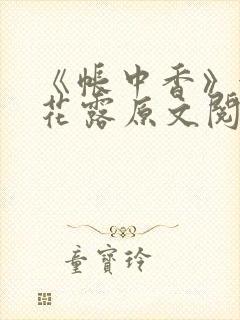 《帐中香》
花露原文阅
童寶玲